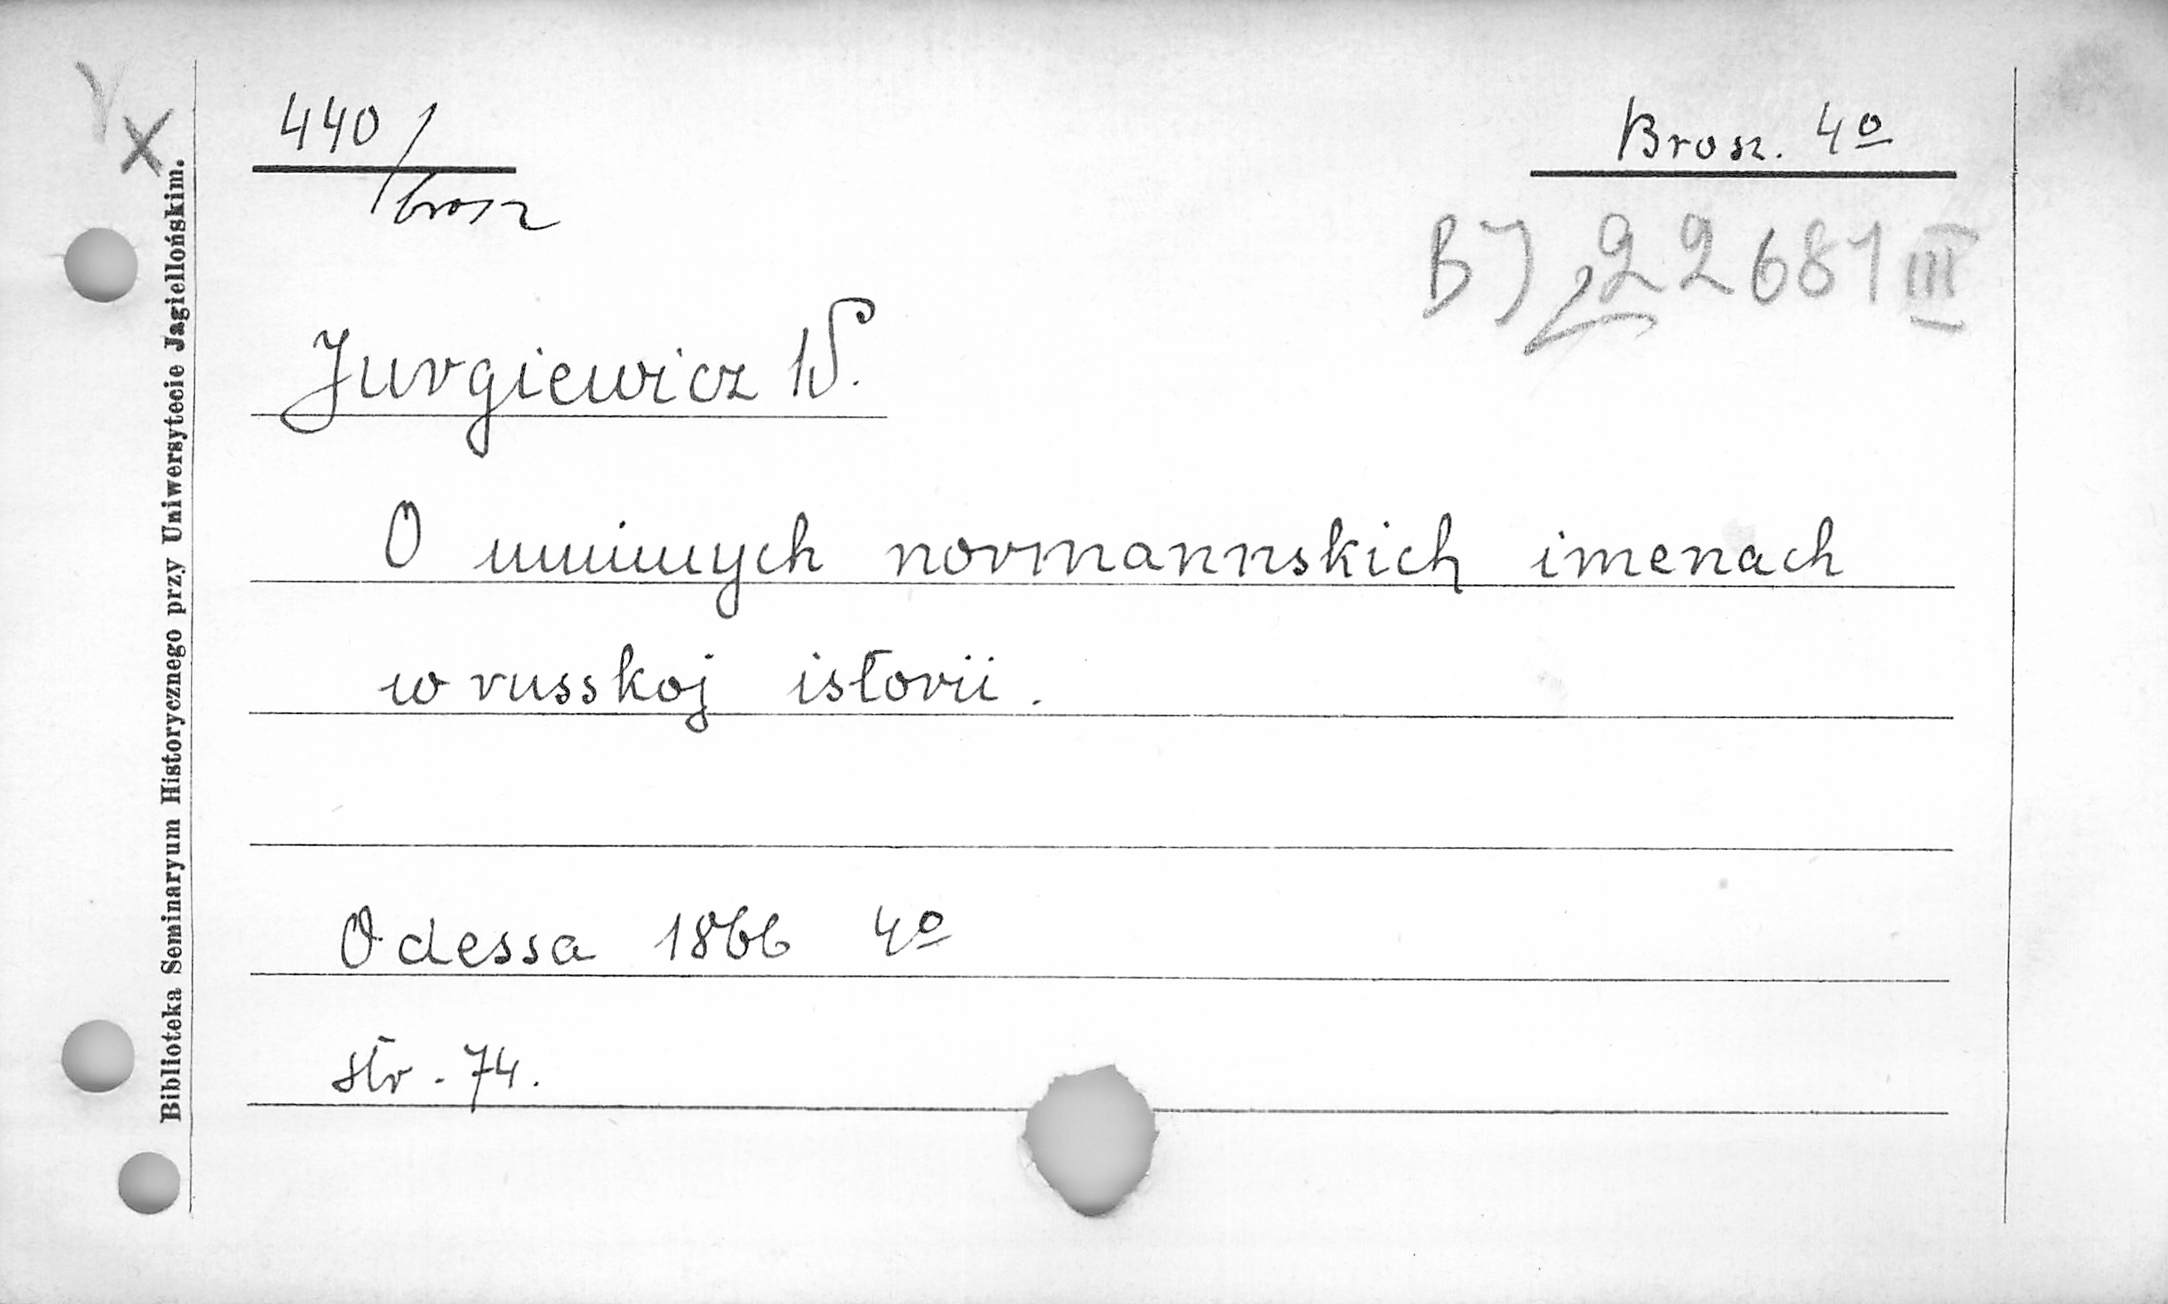 440/brosz
Brosz. 4º
BJ 22681 III
Jurgiewicz W.
O mnimych normannskich imenach
w russkoj istorii.
Odessa 1866 4º
str. 74.
Biblioteka Seminaryum Historycznego przy Uniwersytecie Jagiellońskim.